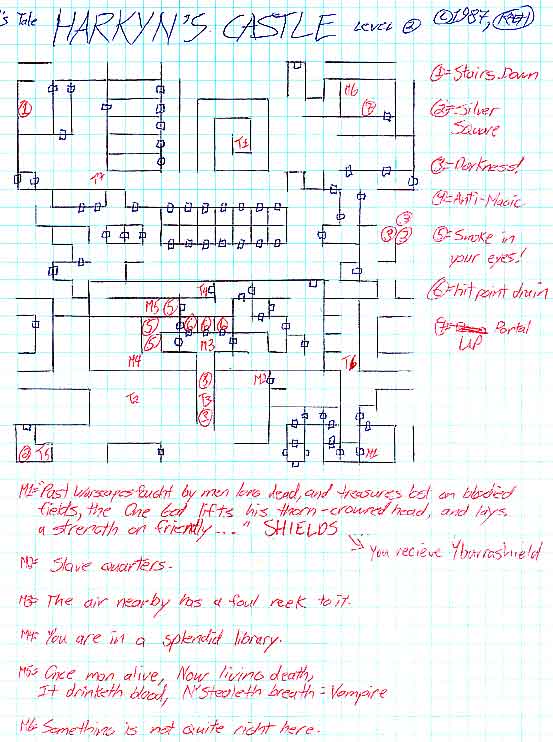 's Tale HARKYN'S CASTLE LEVEL ② ©1987, REH
①=Stairs Down
②=Silver
Square
③=Darkness!
④=Anti-Magic
⑤=Smoke in
your eyes!
⑥=hit point drain
⑦= Portal
UP
M6
①
⑦
T1
T7
⑦
③ ③
T4
M5 ⑤
⑤ ⑥ ⑥ ⑥
⑤ M3
M4
T6
③ M2
T2 T3
③
② T5 M1
M1="Past Warscapes fought by men long dead, and treasures lost on blodied
fields, the One God lifts his thorn-crowned head, and lays
a strength on friendly..." SHIELDS
You recieve Ybarrashield
M2= Slave quarters.
M3= The air nearby has a foul reek to it.
M4= You are in a splendid library.
M5= Once man alive, Now living death,
It drinketh blood, N' Stealeth breath = Vampire
M6= Something is not quite right here.